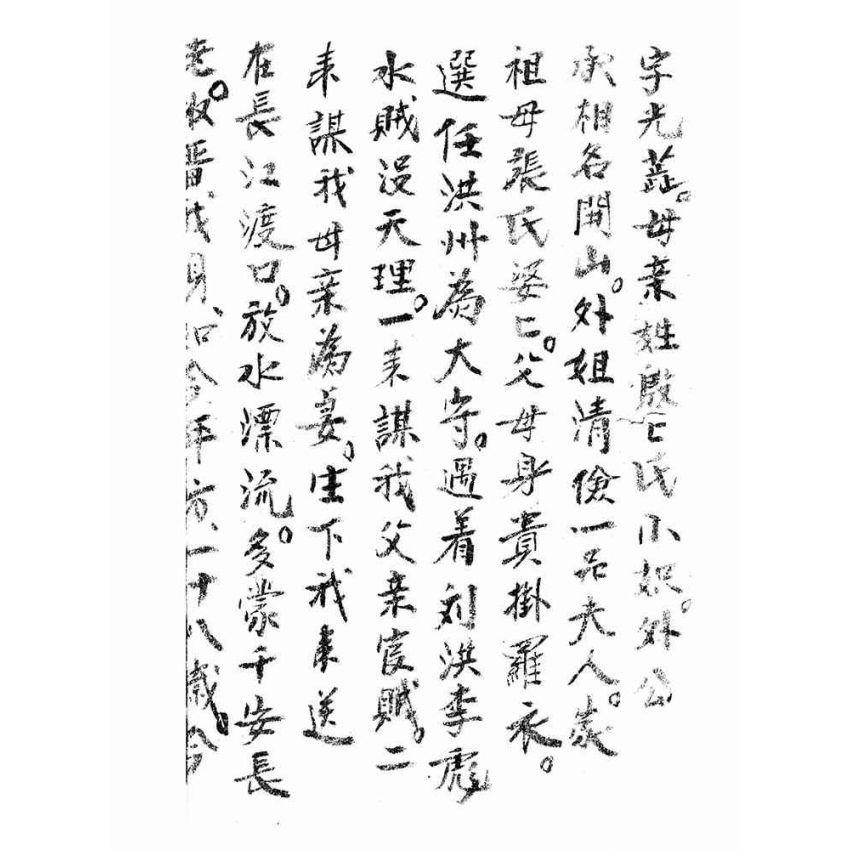 字光蕋。母亲姓殷匕氏小姐。外公
丞相名開山。外姐清儉一品夫人。家
祖母張氏婆匕。父母身貴掛羅衣。
選任洪州為大守。遇着刘洪李彪
水賊没天理。一来謀我父亲宦賊。二
来謀我母亲為妻。生下我来送
在長江渡口。放水漂流。多蒙千安長
老。收畱我身。如今年方一十八歲。今